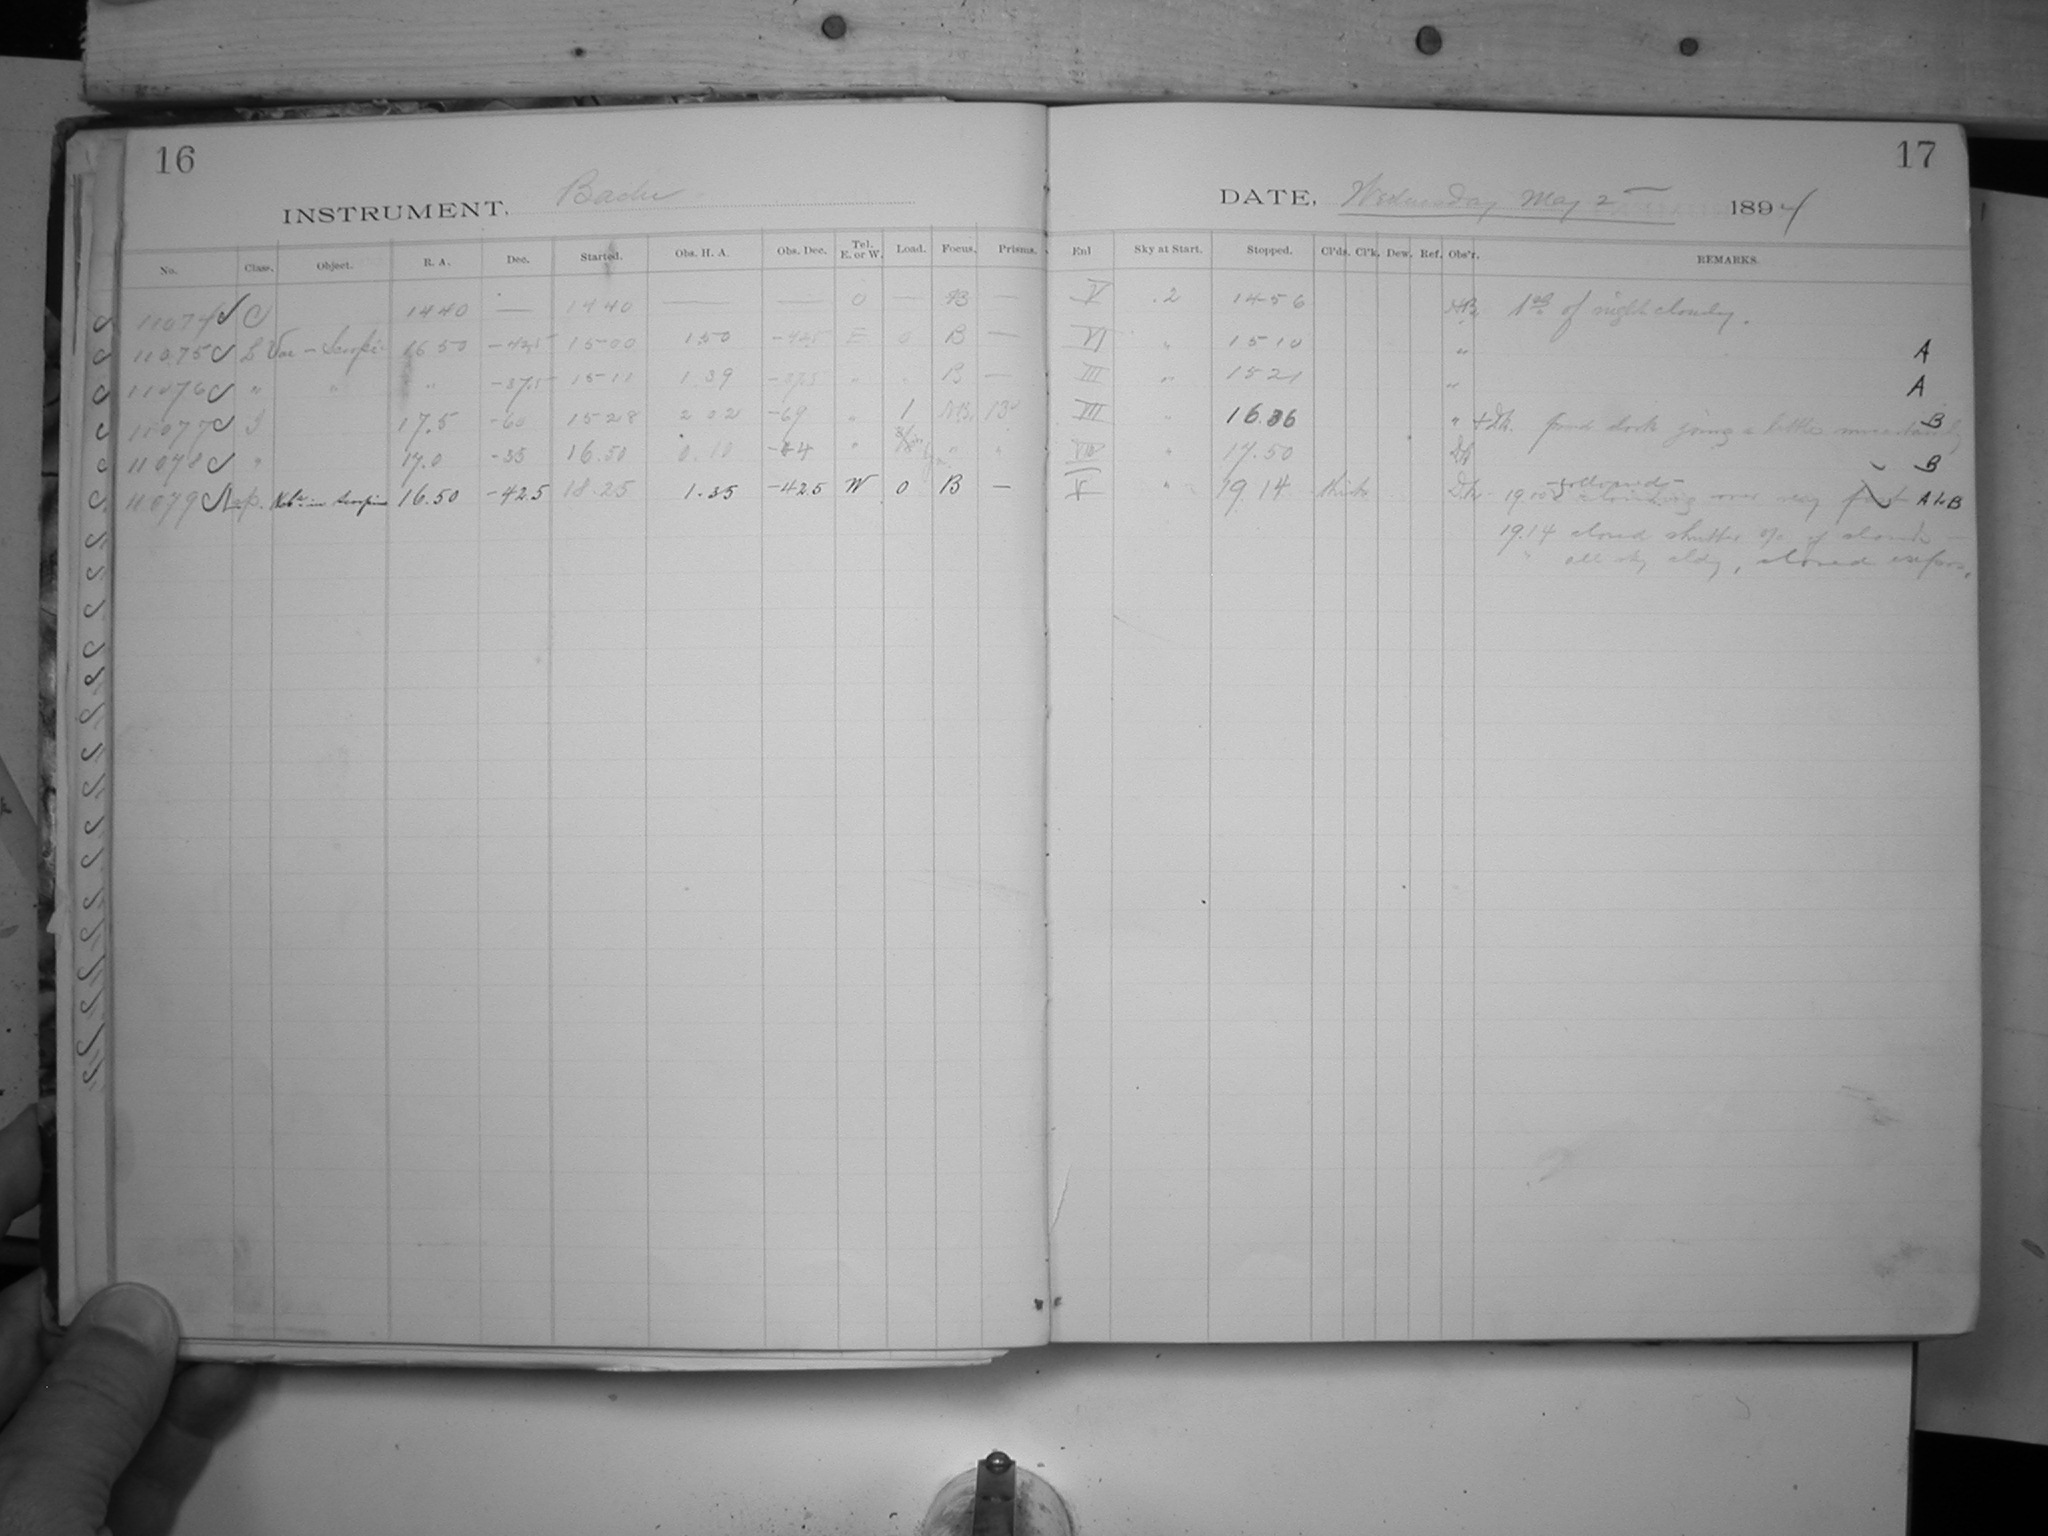 16
INSTRUMENT. Bache
No. Class. Object. R. A. Dec. Started. Obs. H. A. Obs. Dec. Tel. E. or W. Load. Focus. Prisms.
11074 C 1440 — 1440 — — 0 — B —
11075 S Var — Scorpii 16 50 -42.5 15-00 1.50 -42.5 E 0 B —
11076 " " " -37.5 15-11 1.39 -37.5 " B —
11077 17.5 -60 15-28 2 02 -69 " 1
11078 " 17.0 -35 16.50 0.10 " " "
11079 Neb. in Scorpius 16.50 -42.5 18.25 1.35 -42.5 W 0 B —
17
DATE, Wednesday May 2 1894
Enl Sky at Start. Stopped. Cl'ds. Cl'k. Dew. Ref. Obs'r. REMARKS.
V .2 14-56 1st of night cloudy.
VI " 15 10 " A
III " 15 21 " A
VII " 16.36 " found clock going a little uncertainly B
VIII " 17.50 B
X " 19.14 thick 19.10 clouding over very fast A to B
19.14 closed shutter
all sky cldy, closed expos.